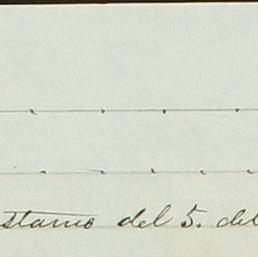 stamo del 5. del